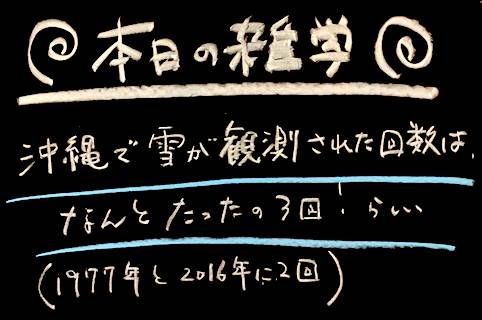 本日の雑学
沖縄で雪が観測された回数は、
なんとたったの3回！らしい
(1977年と2016年に2回)